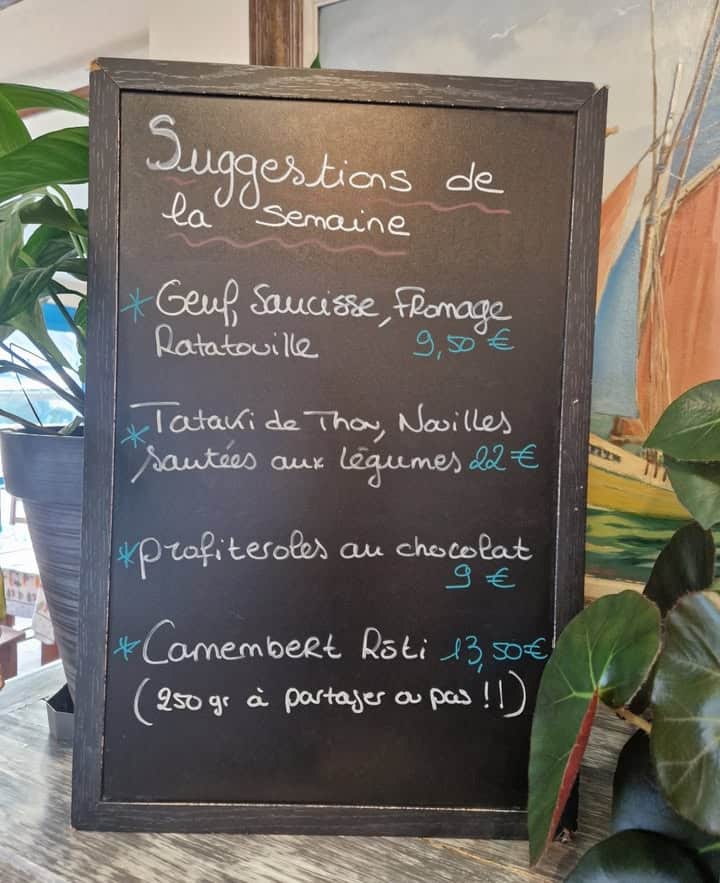 Suggestions de
la Semaine
* Oeuf, Saucisse, Fromage
Ratatouille 9,50 €
* Tataki de Thon, Nouilles
Sautées aux légumes 22 €
* profiteroles au chocolat
9 €
* Camembert Rôti 13,50 €
(250 gr à partager ou pas !!)